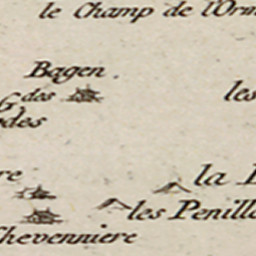 le Champ de l'Orm
Bagen.
G des
les
odes
re
la
les Penill
Chevenniere